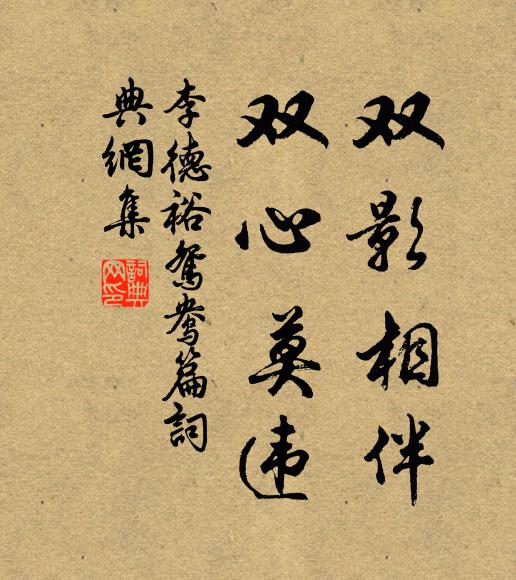 双影相伴
双心莫违
李德裕鸳鸯篇詞
典網集
詞典网印